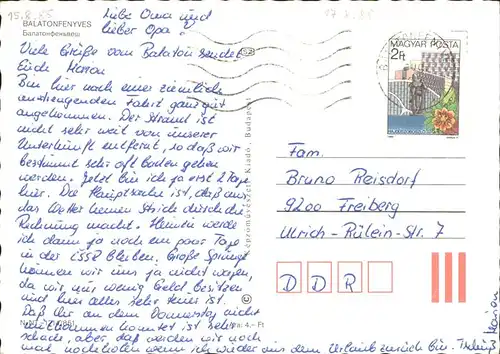 15.8.85
17.8.85
BALATONFENYVES
Балатонфеньвеш
Liebe Oma und
lieber Opa!
Viele Grüße vom Balaton sendet
Euch Marion
Bin hier nach einer ziemlich
anstrengenden Fahrt ganz gut
angekommen. Der Strand ist
nicht sehr weit von unserer
Unterkunft entfernt, so daß wir
bestimmt sehr oft baden gehen
werden. Jetzt bin ich ja erst 2 Tage
hier. Die Hauptsache ist, daß uns
das Wetter keinen Strich durch die
Rechnung macht. werde
ich dann ja noch ein paar Tage
in der ČSSR bleiben. Große Sprünge
können wir uns ja nicht
da wir nur wenig Geld besitzen
und hier alles sehr teuer ist.
Daß Ihr an dem Donnerstag nicht
konntet ist sehr
schade, aber daß werden wir noch
mal nachholen wenn ich wieder aus dem Urlaub zurück bin. Tschüß
Marion
Képzőművészeti Kiadó, Budapest
Ára: 4,- Ft
MAGYAR POSTA
2Ft
Fam.
Bruno Reisdorf
9200 Freiberg
Ulrich-Rülein-Str. 7
D D R